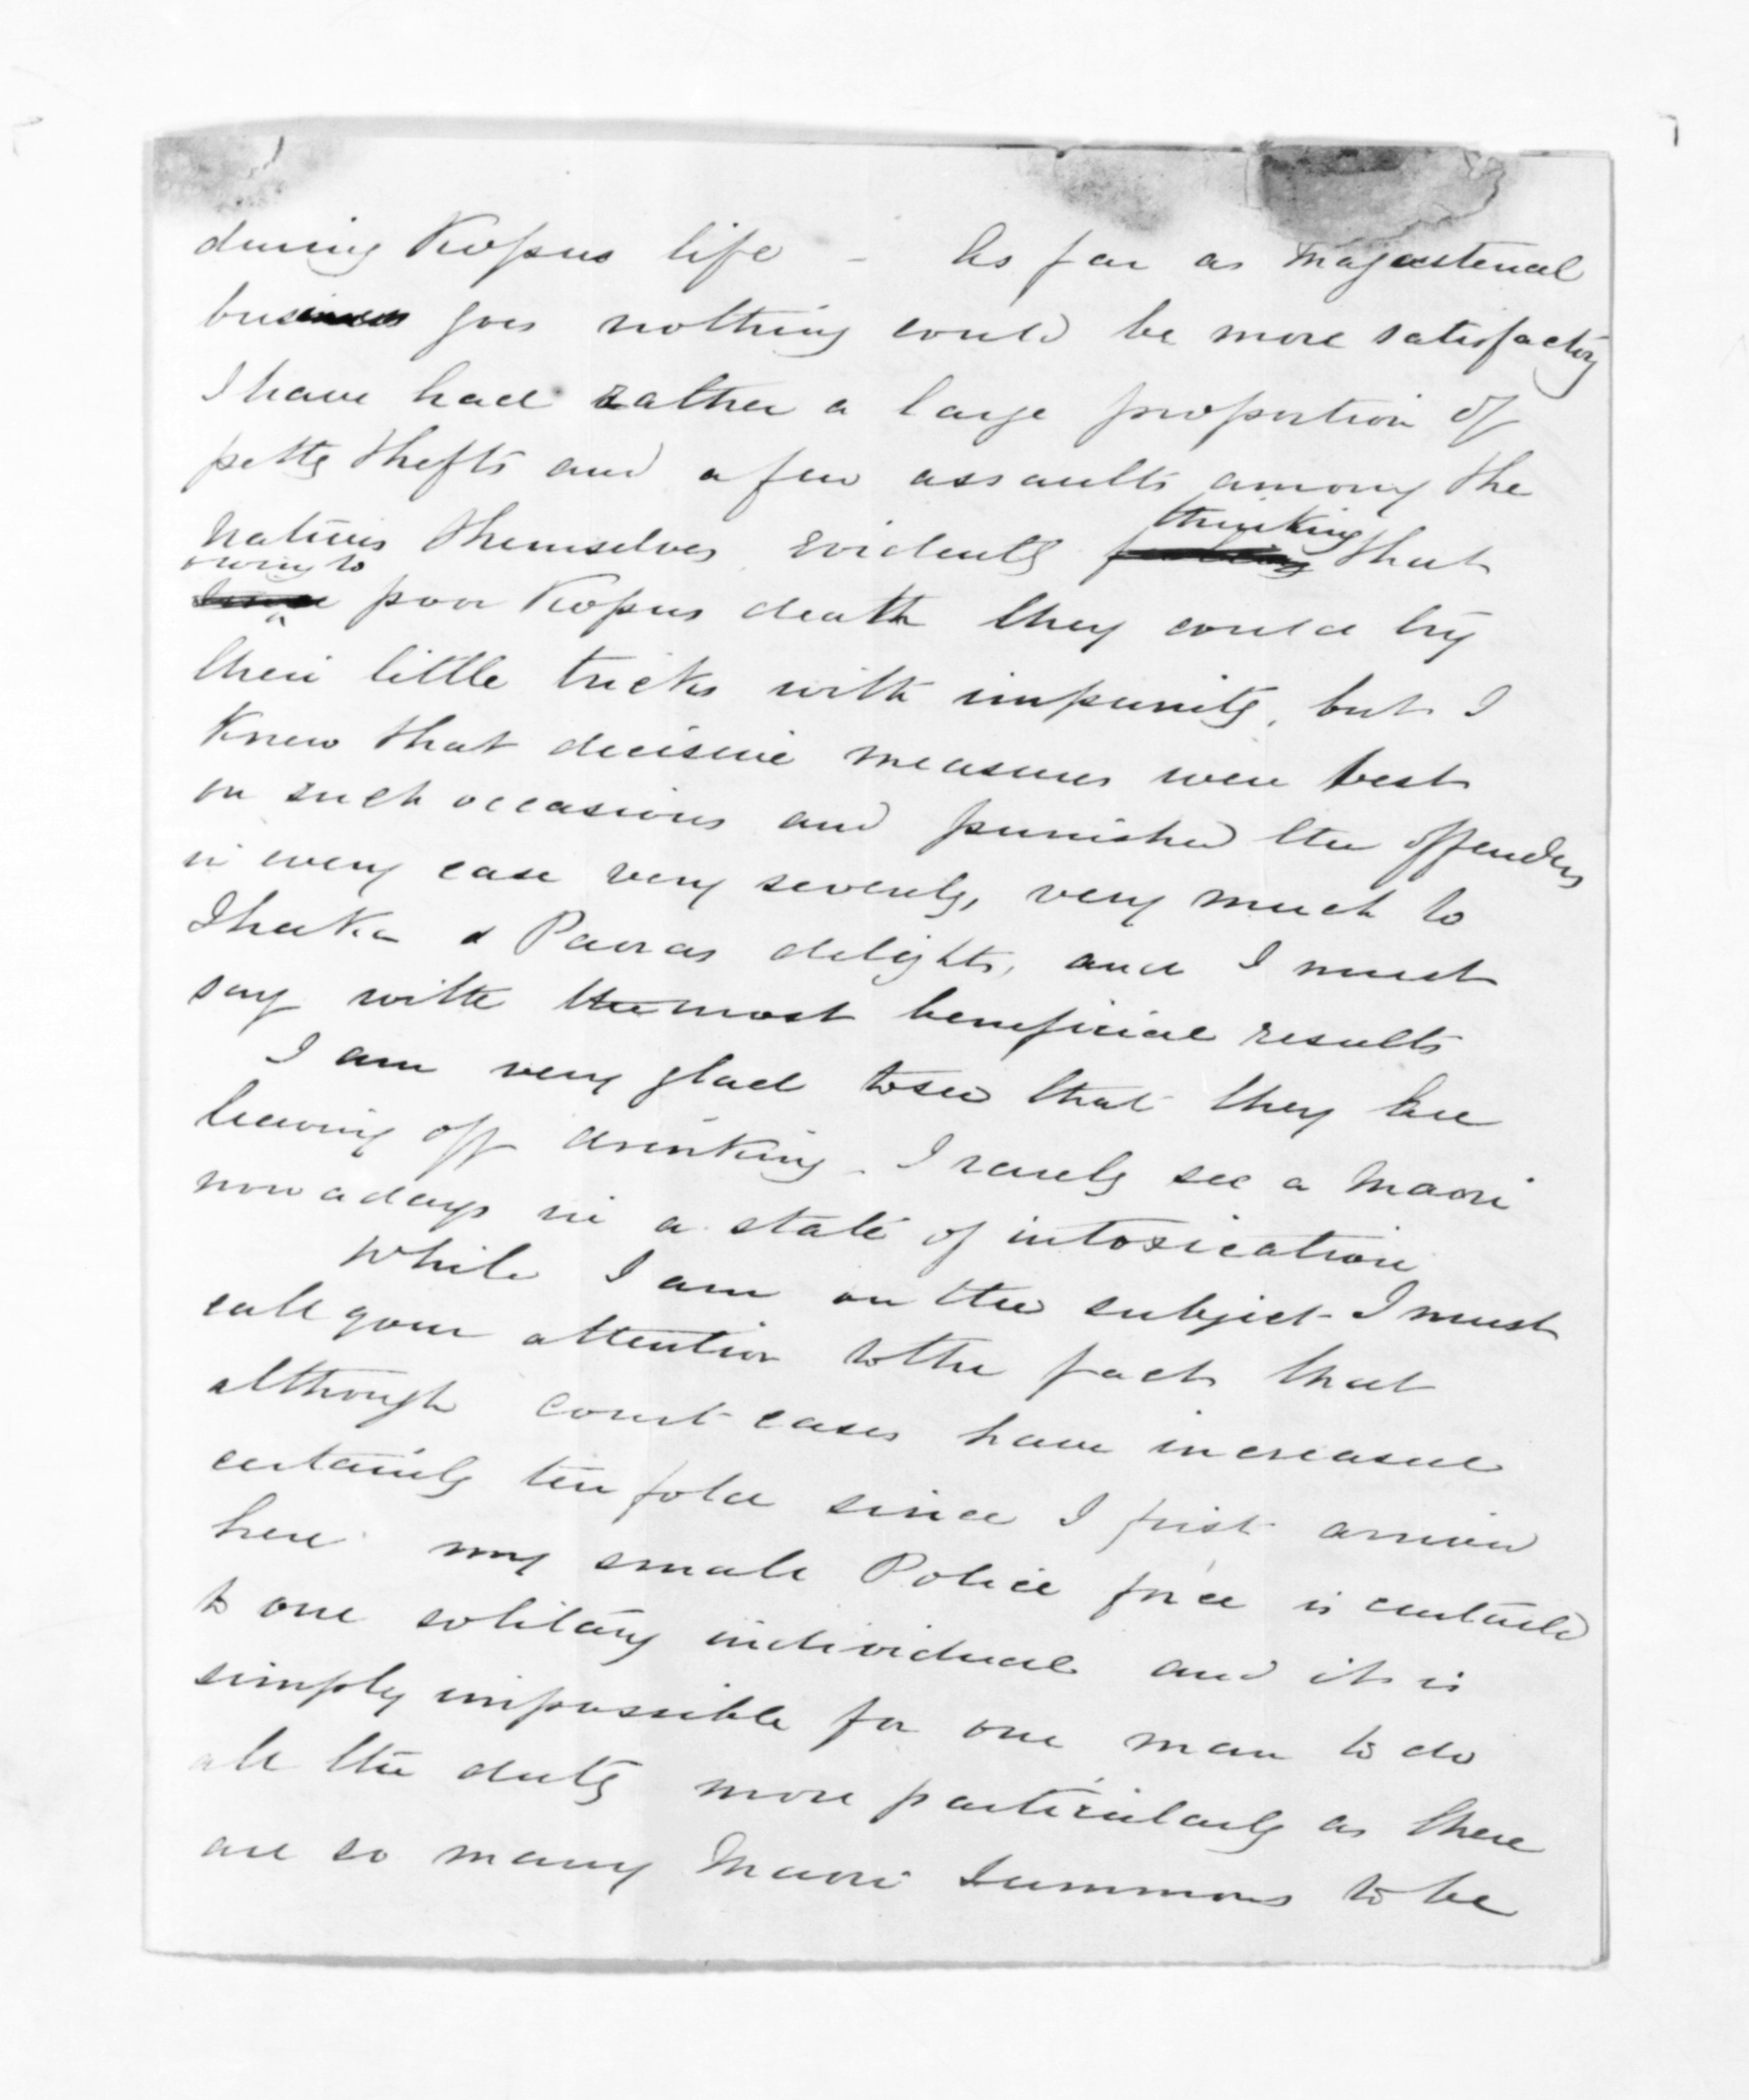 during Kopus life - As far as Magesterial
business goes nothing could be more satisfactory
I have had rather a large proportion of
petty thefts and a few assaults among the
Natives themselves evidently thinking that
owing to poor Kopus death they could try
their little tricks with impunity, but I
Knew that decisive measures were best
on such occasions and punished the offenders
in every case very severely, very much to
Ihaka & Paoras delight, and I must
say with the most beneficial results
I am very glad to see that they are
leaving off drinking - I rarely see a Maori
now a days in a state of intoxication
While I am on the subject I must
call your attention to the fact that
although court cases have increased
certainly ten fold since I first arrived
here my small Police force is curtailed
to one solitary individual and it is
simply impossible for one man to do
all the duty more particularly as there
are so many Maori Summons to be